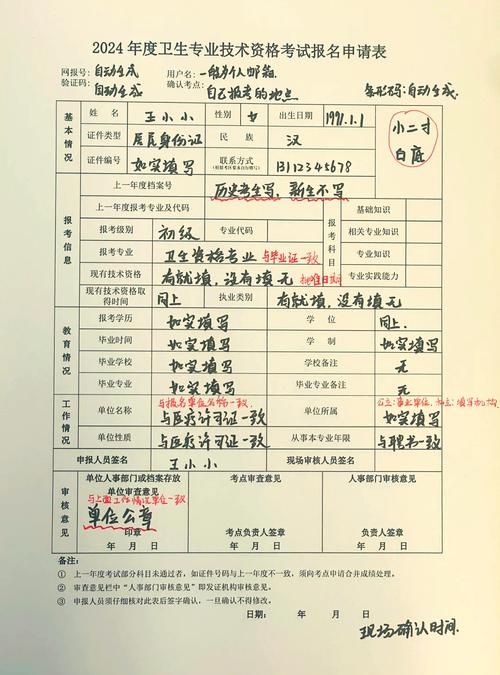 2024 年度卫生专业技术资格考试报名申请表
网报号: 自动生成 用户名: 一般为个人邮箱
验证码: 自动生成 确认考点: 自己报考的地点 条形码: 自动生成
基本情况
姓名 王小小 性别 女 出生日期 1991.1.1
小二寸
白底
证件类型 居民身份证 民族 汉
证件编号 如实填写 联系方式 13112345678
报考信息
上一年度档案号 历史考生写, 新生不写
上一年度报考专业及代码
报考级别 初级 专业代码
报考专业 卫生资格专业 与毕业证一致
现有技术资格 有就填,没有填无 批准日期
现有技术资格取得时间 同上 执业类别 有就填,没有填无
报考科目
基础知识
相关专业知识
专业知识
专业实践能力
教育情况
报考学历 如实填写 学位 同上.
毕业时间 如实填写 学制 如实填写
毕业学校 如实填写 学校备注 无
毕业专业 如实填写 毕业专业备注 无
工作情况
与报名单位名称一致
单位名称 与医疗许可证一致 单位所属 如实填写
单位性质 与医疗许可证一致 从事本专业年限 与聘书一致
申报人员签名 王小小 现场审核人员签名
审核意见
单位人事部门或档案存放单位审查意见 考点审查意见 人事部门审核意见
与上面工作情况单位一致
单位公章
印章 考点负责人签章 负责人签章
年 月 日 年 月 日 年 月 日
备注:
① 上一年度考试部分科目未通过者,如证件号码与上一年度不一致,须向考点申请合并成绩处理。
② 审查意见栏中“人事部门审核意见”即发证机构审核意见。
③ 申报人员须仔细核对此表后签字确认,一旦确认不得修改。
日期: 年 月 日
现场确认时间.